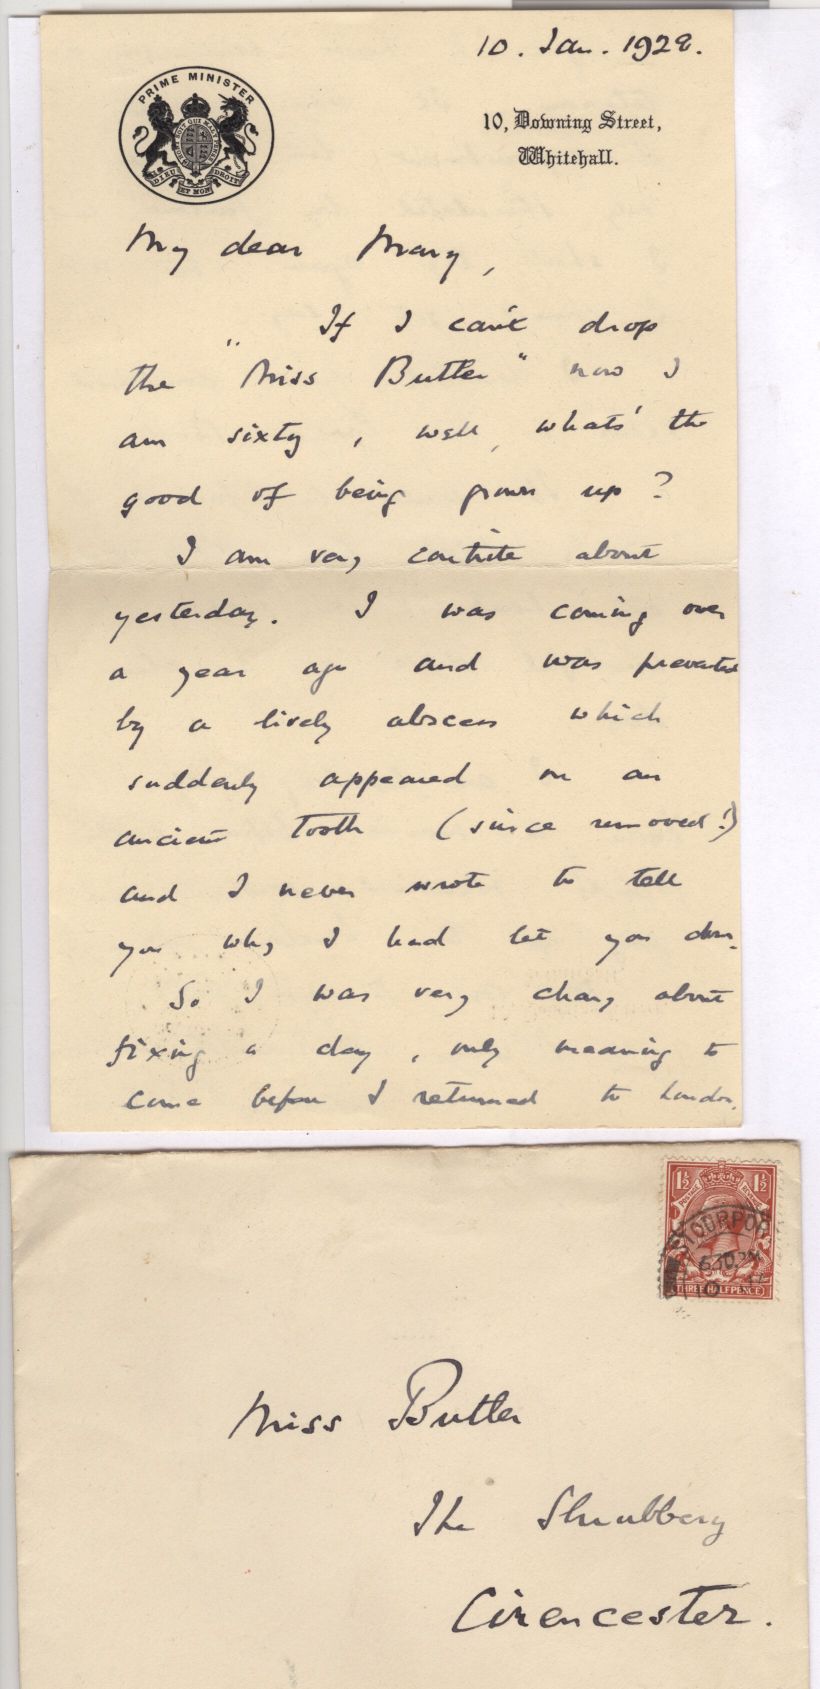 10. Jan. 1928.
PRIME MINISTER
HONI SOIT QUI MAL Y PENSE
DIEU ET MON DROIT
10, Downing Street,
Whitehall.
My dear Mary,
If I can't drop
the "Miss Butler" now I
am sixty, well, whats' the
good of being grown up?
I am very contrite about
yesterday. I was coming over
a year ago and was prevented
by a lively abscess which
suddenly appeared on an
ancient tooth (since removed!)
and I never wrote to tell
you why I had let you down.
So I was very chary about
fixing a day, only meaning to
come before I returned to London.
1½ 1½
POSTAGE REVENUE
THREE HALFPENCE
TOURPOR
630PM
10
Miss Butler
The Shrubbery
Cirencester.